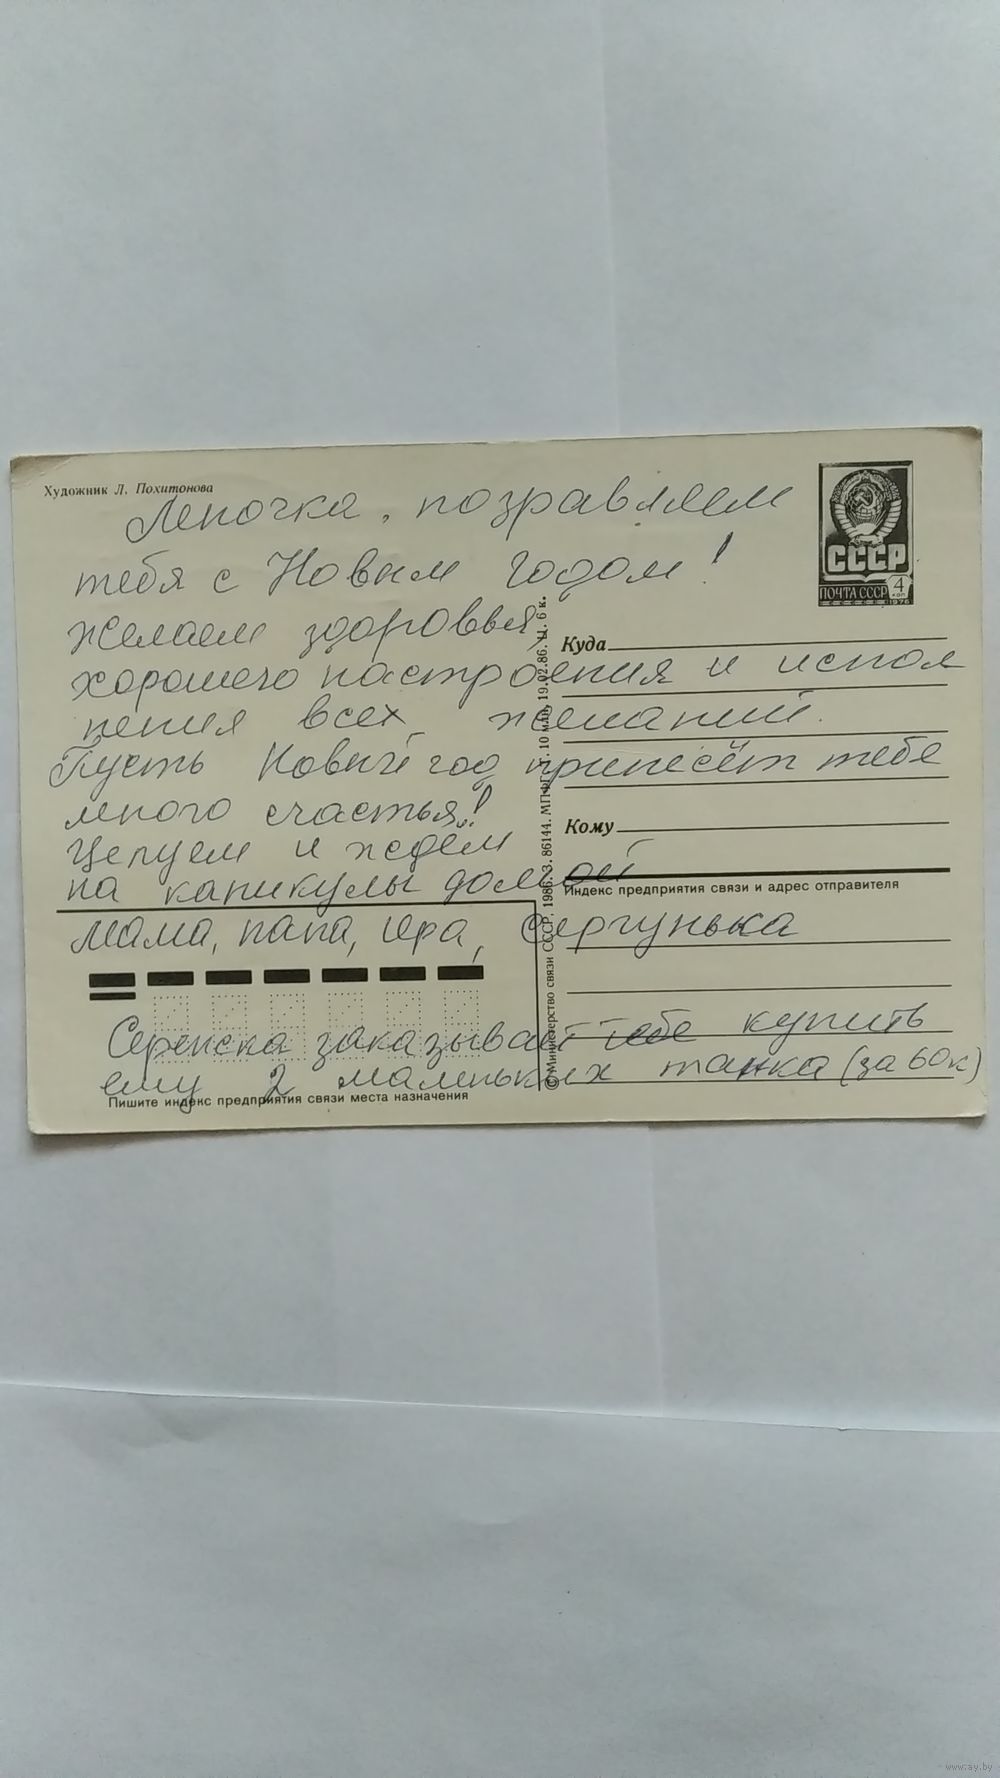 Художник Л. Похитонова
СССР
ПОЧТА СССР 4 коп
1976
Леночка, поздравляем
тебя с Новым годом!
Желаем здоровья,
хорошего настроения и испол
нения всех желаний.
Пусть Новый год принесёт тебе
много счастья!
Целуем и ждём
на каникулы домой
Мама, папа, Ира, Сергунька
Сережка заказывает тебе купить
ему 2 маленьких танка (за 60к)
Куда
Кому
Индекс предприятия связи и адрес отправителя
Пишите индекс предприятия связи места назначения
© Министерство связи СССР. 1986. З. 86144. МПФГ. Т. 10 млн. 19.02.86. Ц. 6 к.
www.ay.by